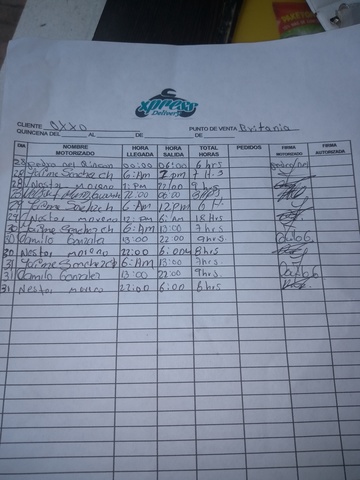 xpress
Delivery
CLIENTE OXXO PUNTO DE VENTA Britania
QUINCENA DEL AL DE DE
DIA NOMBRE MOTORIZADO HORA LLEGADA HORA SALIDA TOTAL HORAS PEDIDOS FIRMA MOTORIZADO FIRMA AUTORIZADA
28 00:00 06:00 6 hrs
28 Jaime Sanchez ch 6:Am 1 pm 7 H.S
28 Nestor moreno 1:PM 22:00 9 hrs
22:00 06:00
29 Jaime Sanchez ch 6 Am 12pm 6 H
29 Nestor moreno 12:PM 6:Am 18 Hrs
30 Jaime Sanchez ch 6:Am 13:00 7 hrs
30 Camilo Gonzalez 13:00 22:00 9hrs.
30 Nestor moreno 22:00 6:00 8 hrs
31 Jaime Sanchez ch 6:Am 13:00 7hrs
31 Camilo Gonzalez 13:00 22:00 9hrs.
31 Nestor moreno 22:00 6:00 6 hrs